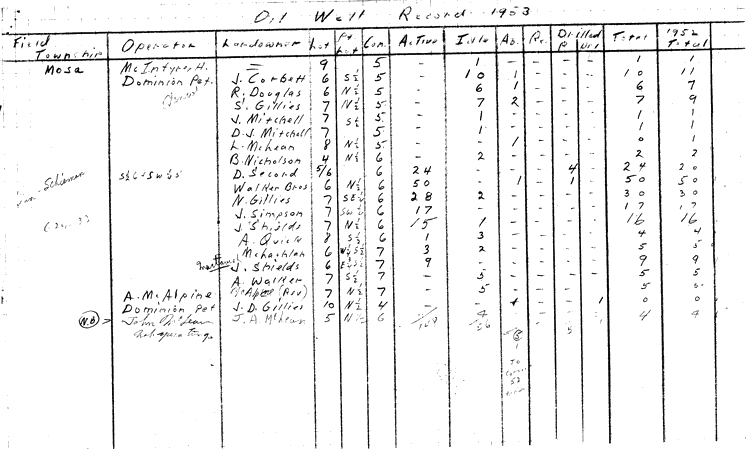 Oil Well Record 1953
Field Township Operator Landowner Lot Pt Lot Con. Active Idle Ab. Re. Drilled P Total 1952 Total
Mosa McIntyre H. = 9 5 - 1 - - - - 1 1
Dominion Pet. J. Corbett 6 S½ 5 - 10 1 - - - 10 11
R. Douglas 6 N½ 5 - 6 1 - - - 6 7
S. Gillies 7 N½ 5 - 7 2 - - - 7 9
J. Mitchell 7 S½ 5 - 1 - - - - 1 1
D. J. Mitchell 7 5 - 1 - - - - 1 1
L. McLean 8 N½ 5 - - 1 - - - 0 1
B. Nicholson 4 N½ 6 - 2 - - - - 2 2
D. Secord 5/6 6 24 - - - 4 - 24 20
Walker Bros 6 N½ 6 50 - 1 - 1 - 50 50
N. Gillies 7 6 28 2 - - - - 30 30
J. Simpson 7 6 17 - - - - - 17 17
J. Shields 7 N½ 6 15 1 - - - - 16 16
A. Quick 8 S½ 6 1 3 - - - - 4 4
McLachlan 6 7 3 2 - - - - 5 5
J. Shields 6 7 9 - - - - - 9 9
A. Walker 7 S½ 7 - 5 - - - - 5 5
A. McAlpine 7 N½ 7 - 5 - - - - 5 5
Dominion Pet J. D. Gillies 10 N½ 4 - - - - 1 0 0
N.B. > John McLean J. A. McLean 5 6 4 - - - 4 4
not operating
56 6 5
To
52